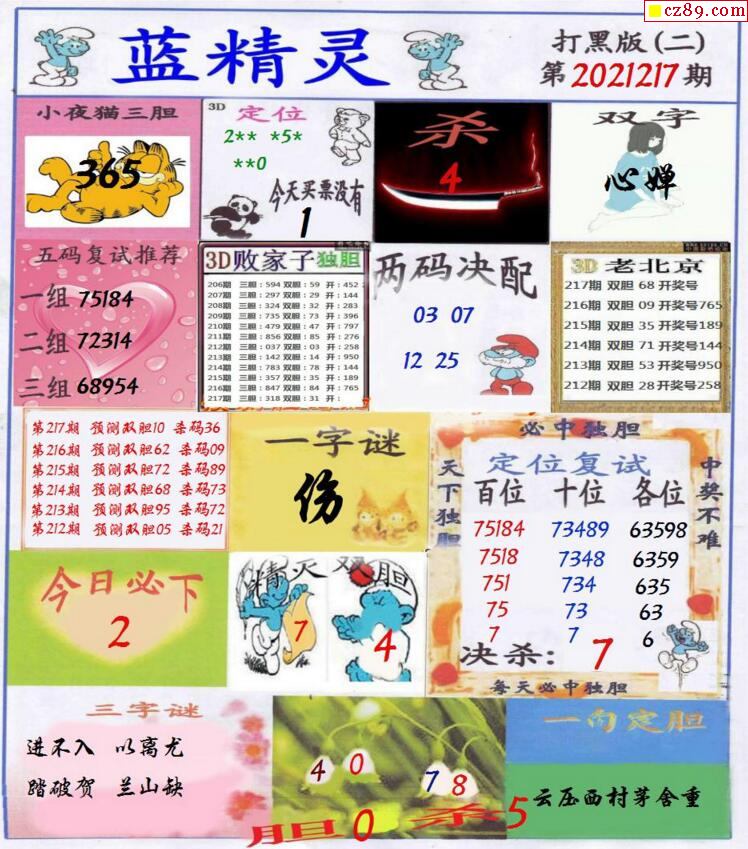 cz89.com
蓝精灵
打黑版(二)
第2021217期
小夜猫三胆
365
3D 定位
2** *5*
**0
今天买票没有
1
杀
4
双字
心婵
五码复试推荐
一组 75184
二组 72314
三组 68954
3D败家子独胆
206期 三胆：594 双胆：59 开：452
207期 三胆：297 双胆：29 开：144
208期 三胆：324 双胆：32 开：283
209期 三胆：735 双胆：73 开：396
210期 三胆：479 双胆：47 开：797
211期 三胆：856 双胆：85 开：276
212期 三胆：037 双胆：03 开：258
213期 三胆：142 双胆：14 开：950
214期 三胆：783 双胆：78 开：144
215期 三胆：357 双胆：35 开：189
216期 三胆：847 双胆：84 开：765
217期 三胆：318 双胆：31 开：
两码决配
03 07
12 25
3D 老北京
217期 双胆 68 开奖号
216期 双胆 09 开奖号765
215期 双胆 35 开奖号189
214期 双胆 71 开奖号144
213期 双胆 53 开奖号950
212期 双胆 28 开奖号258
第217期 预测双胆10 杀码36
第216期 预测双胆62 杀码09
第215期 预测双胆72 杀码89
第214期 预测双胆68 杀码73
第213期 预测双胆95 杀码72
第212期 预测双胆05 杀码21
一字谜
伤
必中独胆
天下独胆
中奖不难
定位复试
百位 十位 各位
75184 73489 63598
7518 7348 6359
751 734 635
75 73 63
7 7 6
决杀：7
每天必中独胆
今日必下
2
精灵双胆
7
4
三字谜
进不入 以离尤
踏破贺 兰山缺
4 0 7 8
胆 0 杀 5
一句定胆
云压西村茅舍重